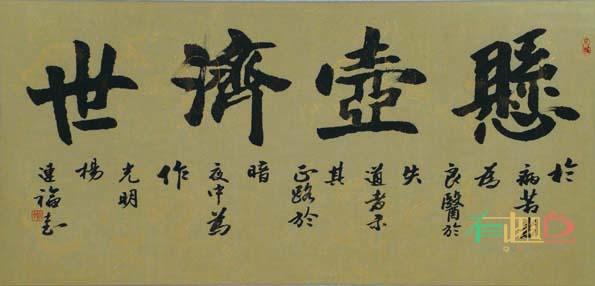 懸壺濟世
於
病苦者
為
良醫於
失
道者示
其
正路於
暗
夜中為
作
光明
楊
連福書